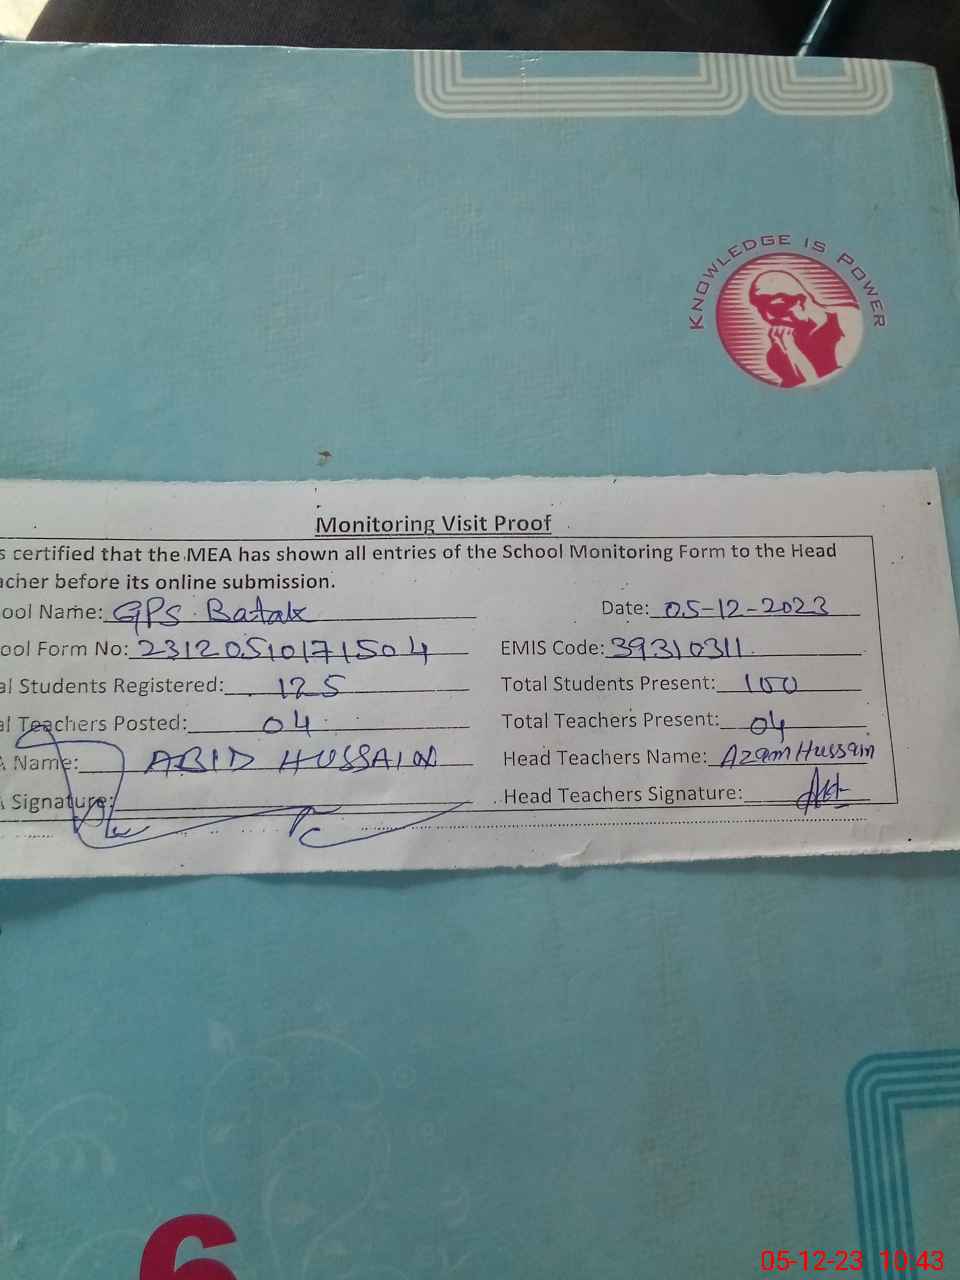 KNOWLEDGE IS POWER
Monitoring Visit Proof
s certified that the MEA has shown all entries of the School Monitoring Form to the Head
acher before its online submission.
ool Name: GPS Batak Date: 05-12-2023
ool Form No: 23120510171504 EMIS Code: 39310311
al Students Registered: 125 Total Students Present: 100
al Teachers Posted: 04 Total Teachers Present: 04
A Name: ABID HUSSAIN Head Teachers Name: Azam Hussain
A Signature: Head Teachers Signature:
6
05-12-23 10:43